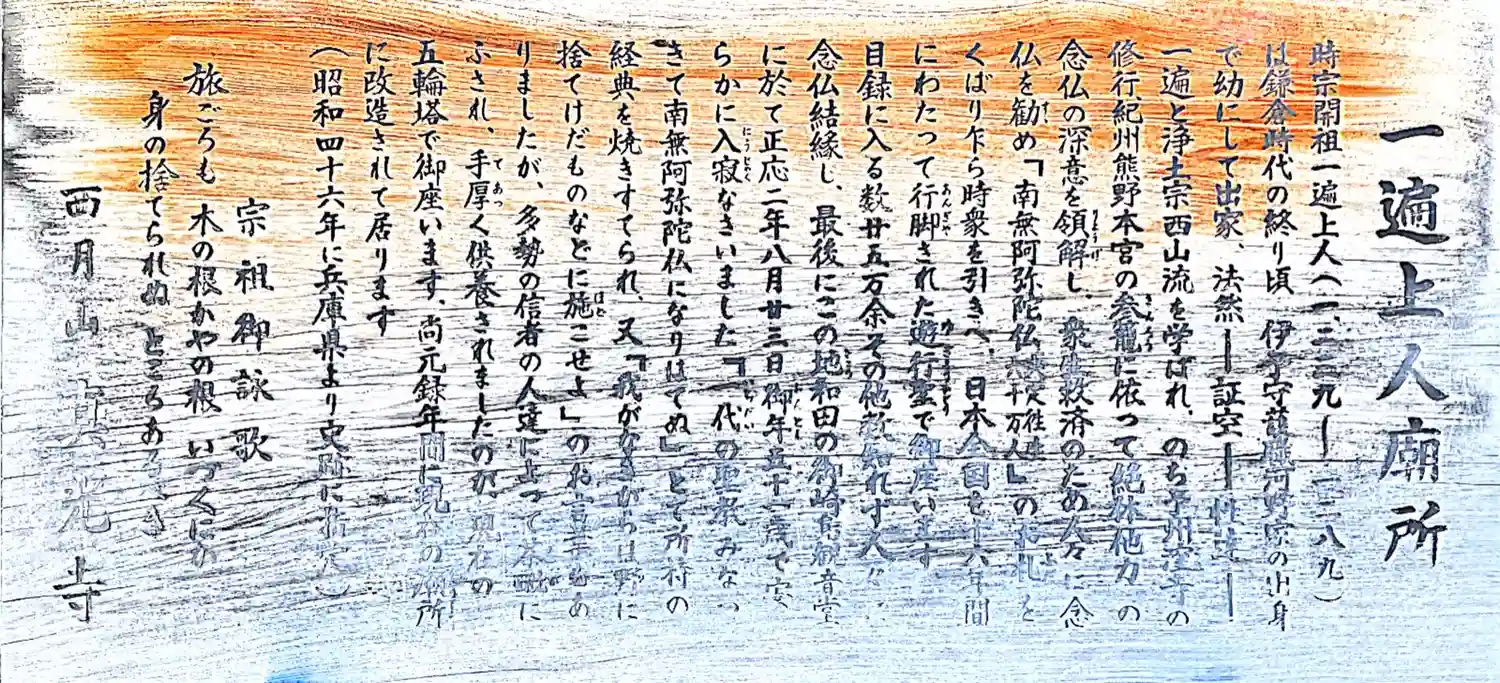 一遍上人廟所
時宗開祖一遍上人(一二三九―一二八九)
は鎌倉時代の終り頃 伊予守護職河野家の出身
で幼にして出家、法然―証空―聖達―
一遍と浄土宗西山流を学ばれ、のち予州窪寺の
修行紀州熊野本宮の参籠に依って絶体他力の
念仏の深意を領解し、衆生救済のため人々に念
仏を勧め「南無阿弥陀仏決定往生六十万人」のお札を
くばり乍ら時衆を引きへ、日本全国を十六年間
にわたって行脚された遊行聖で御座います
目録に入る数廿五万余その他数知れず人々に
念仏結縁し、最後にこの地和田の御崎 観音堂
に於て正応二年八月廿三日御年五十一歳で安
らかに入寂なさいました「一代の聖教みなつ
きて南無阿弥陀仏になりはてぬ」とて所持の
経典を焼きすてられ、又「我がなきがらは野に
捨てけだものなどに施こせよ」のお言葉もあ
りましたが、多勢の信者の人達に上って荼毗に
ふされ、手厚く供養されましたのが、現在の
五輪塔で御座います、尚元録年間に現在の廟所
に改造されて居ります
(昭和四十六年に兵庫県より史跡に指定)
宗祖御詠歌
旅ごろも 木の根かやの根 いづくにか
身の捨てられぬ ところあるべき
西月山 真光寺